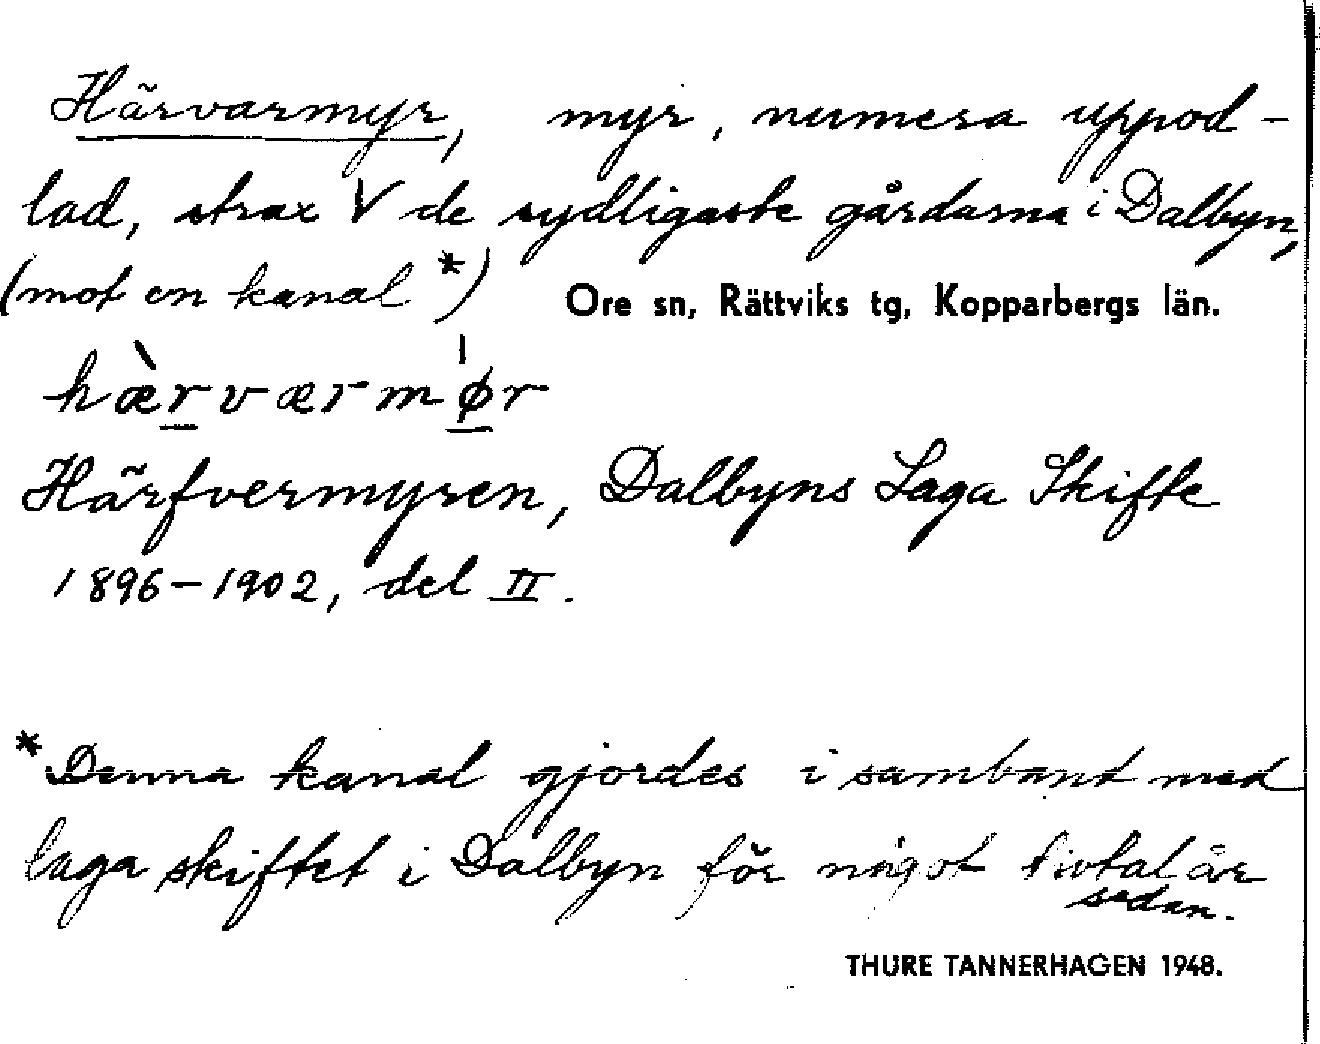 Härvarmyr, myr, numera uppod-
lad, strax V de sydligaste gårdarna i Dalbyn,
(mot en kanal *)
Ore sn, Rättviks tg, Kopparbergs län.
hæ̀rværmǿr
Härfvermyren, Dalbyns Laga Skifte
1896-1902, del II.
*Denna kanal gjordes i samband med
laga skiftet i Dalbyn för något tiotal år
sedan.
THURE TANNERHAGEN 1948.